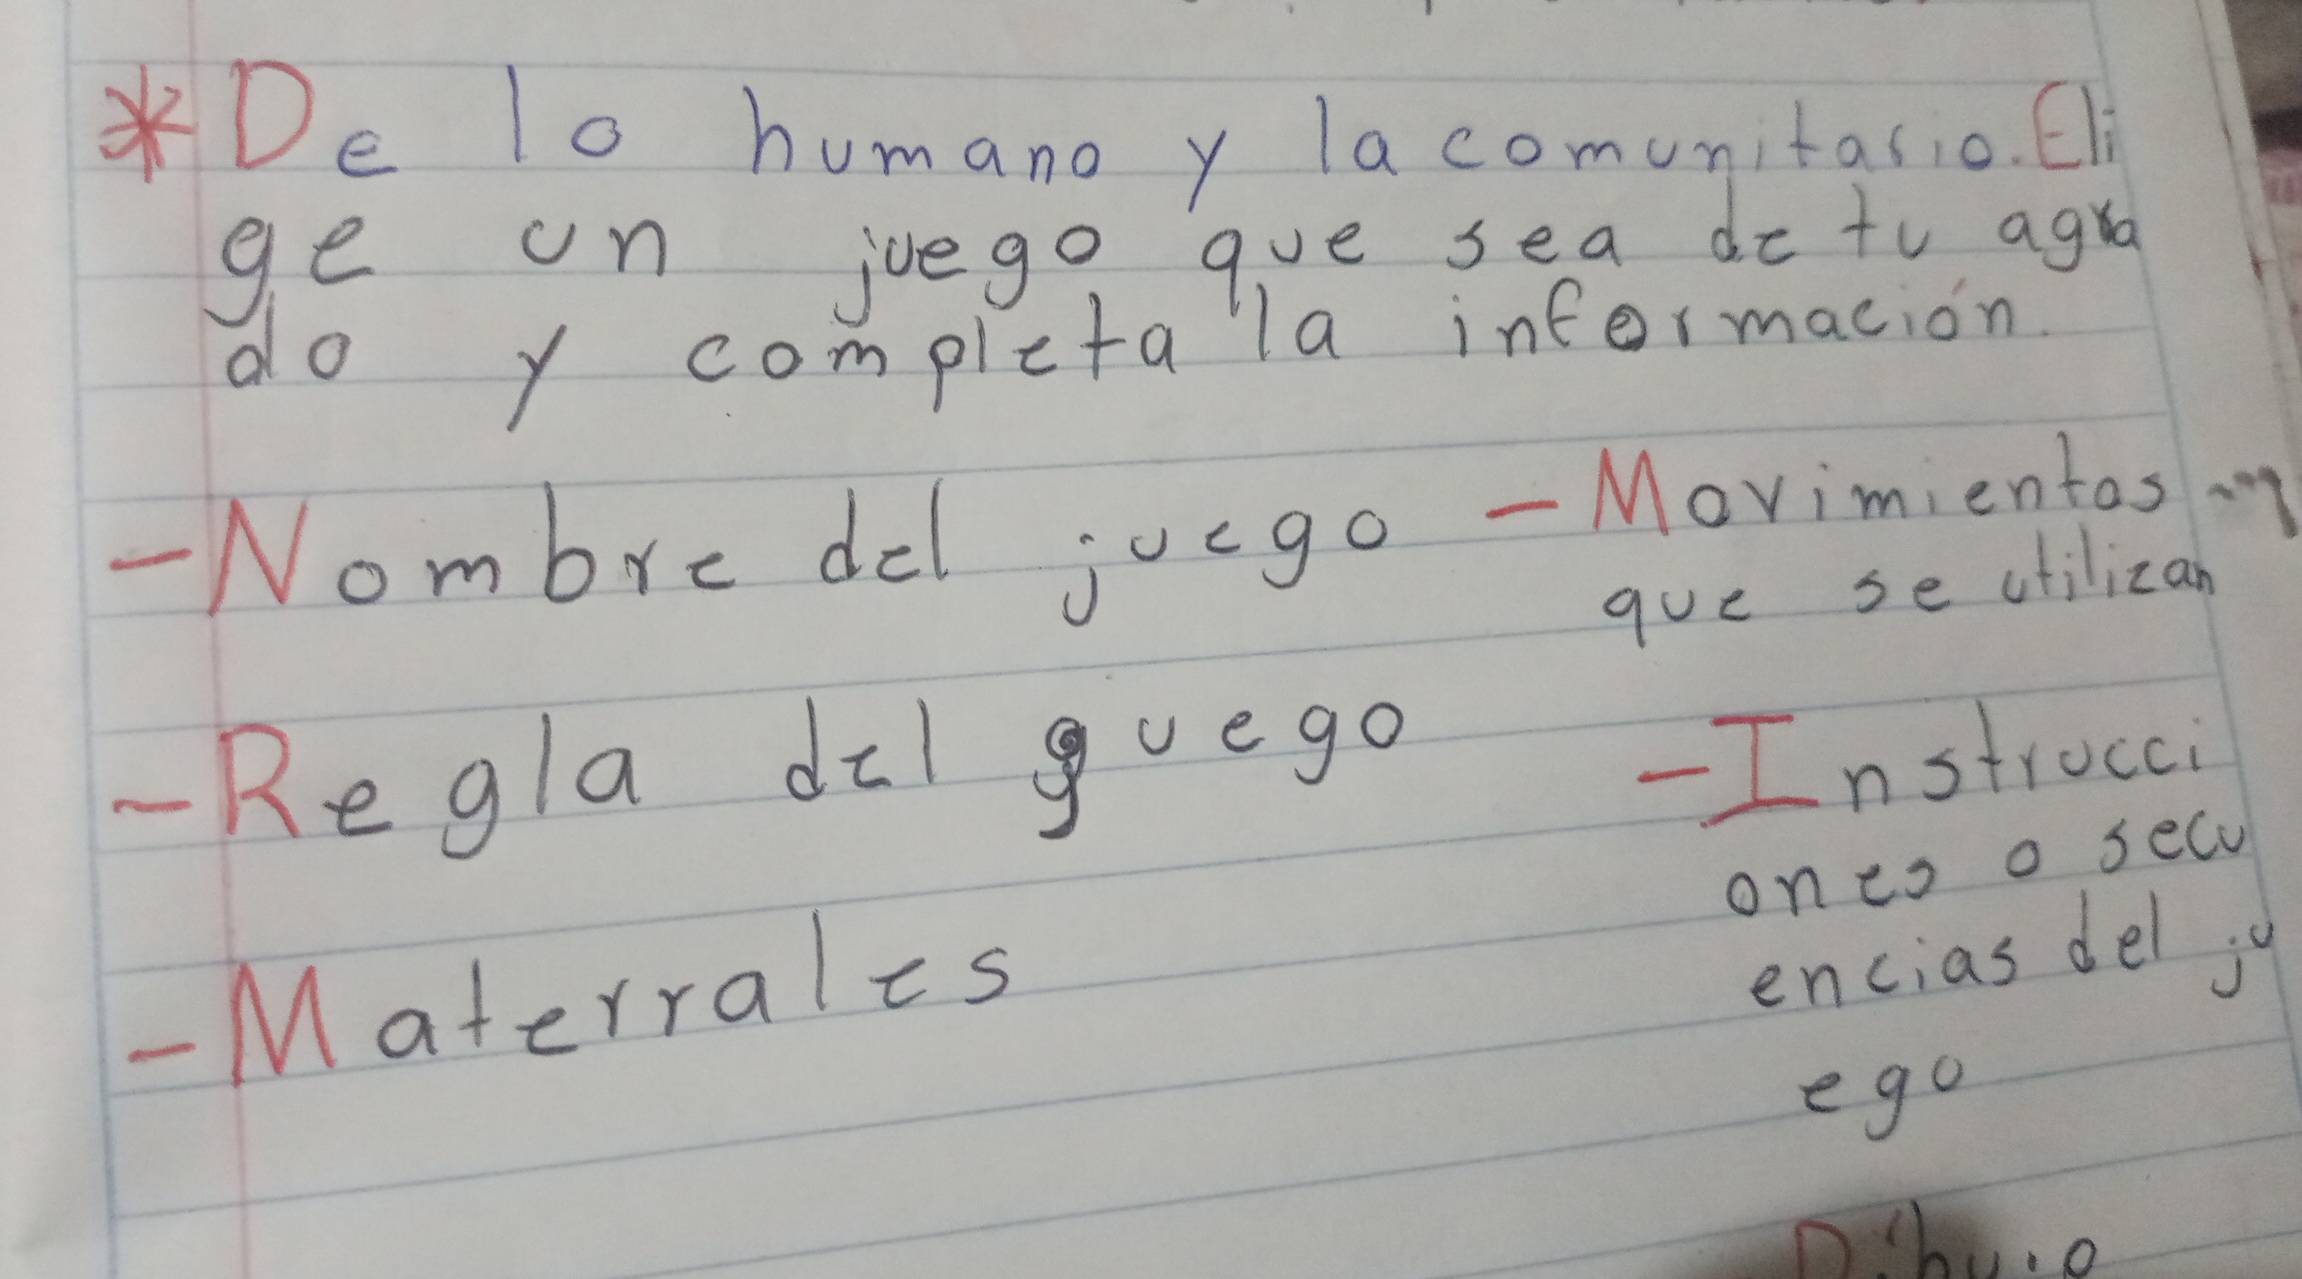 *De lo humano y la comunitario. Eli
ge un juego que sea de tu agra
do y completa la información.
-Nombre del juego
-Movimientos
que se utilizan
-Regla del guego
-Instrucci
ones o secu
encias del ju
ego
-Materrales
Dibujo